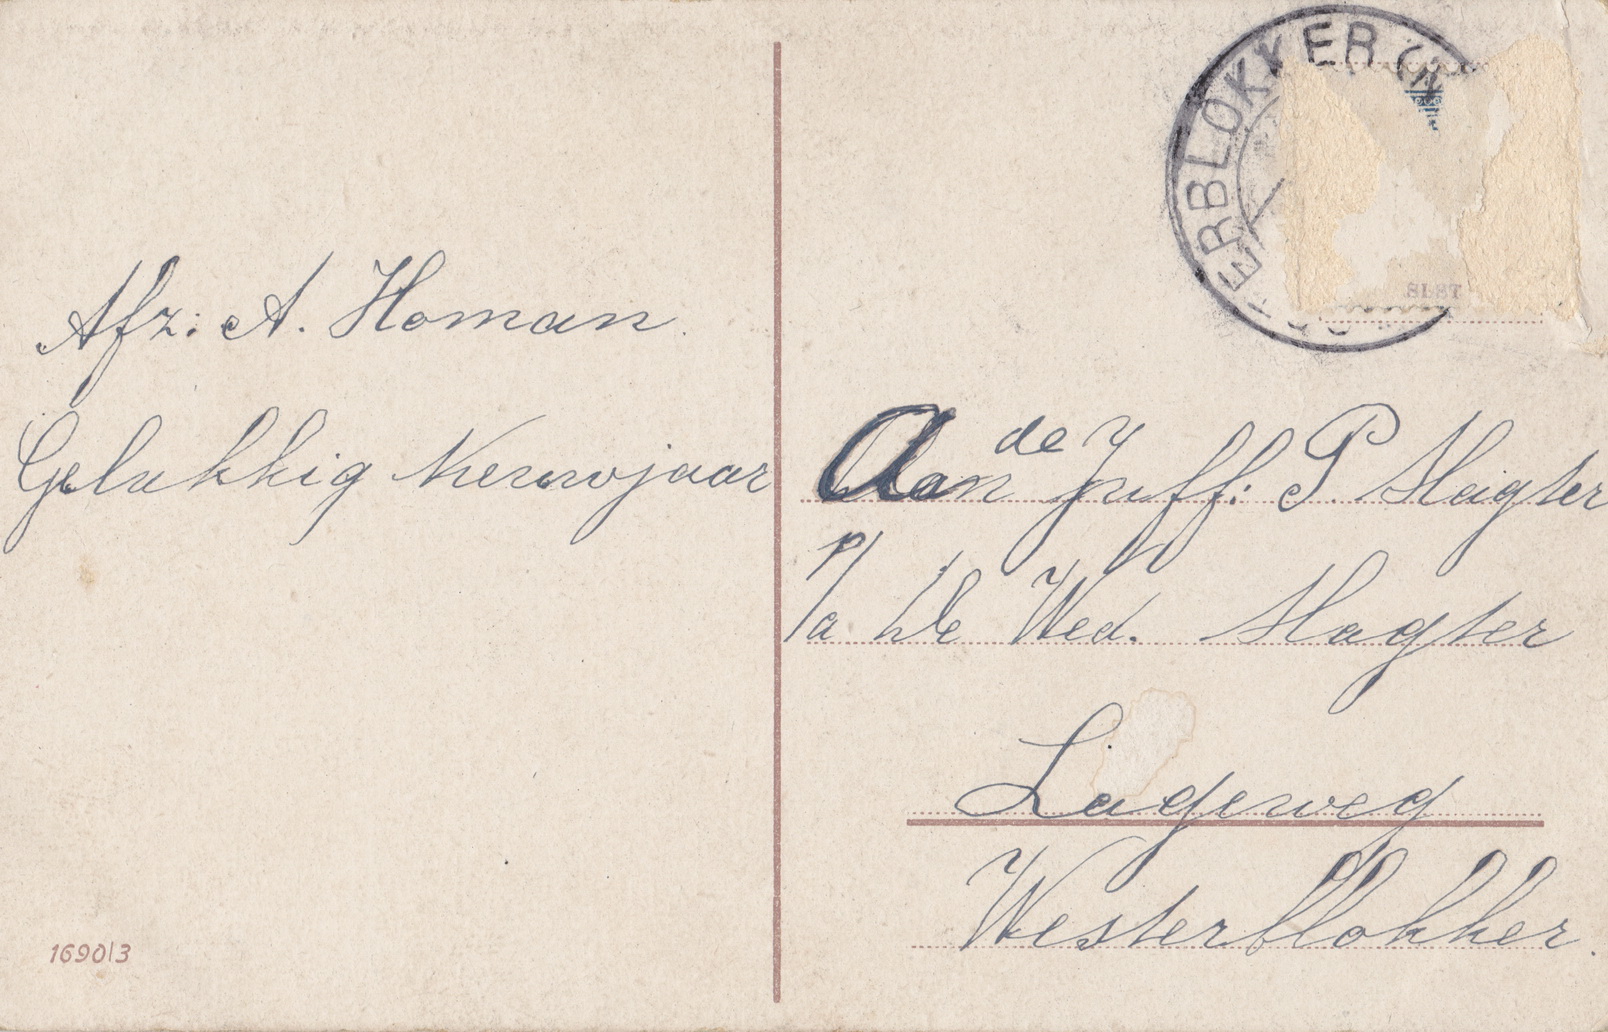 Afz: A. Homan.
Gelukkig Nieuwjaar
ERBLOKKER (N
Aan de Juff: P. Slagter
p/a De Wed. Slagter
Lageweg
Westerblokker.
1690/3